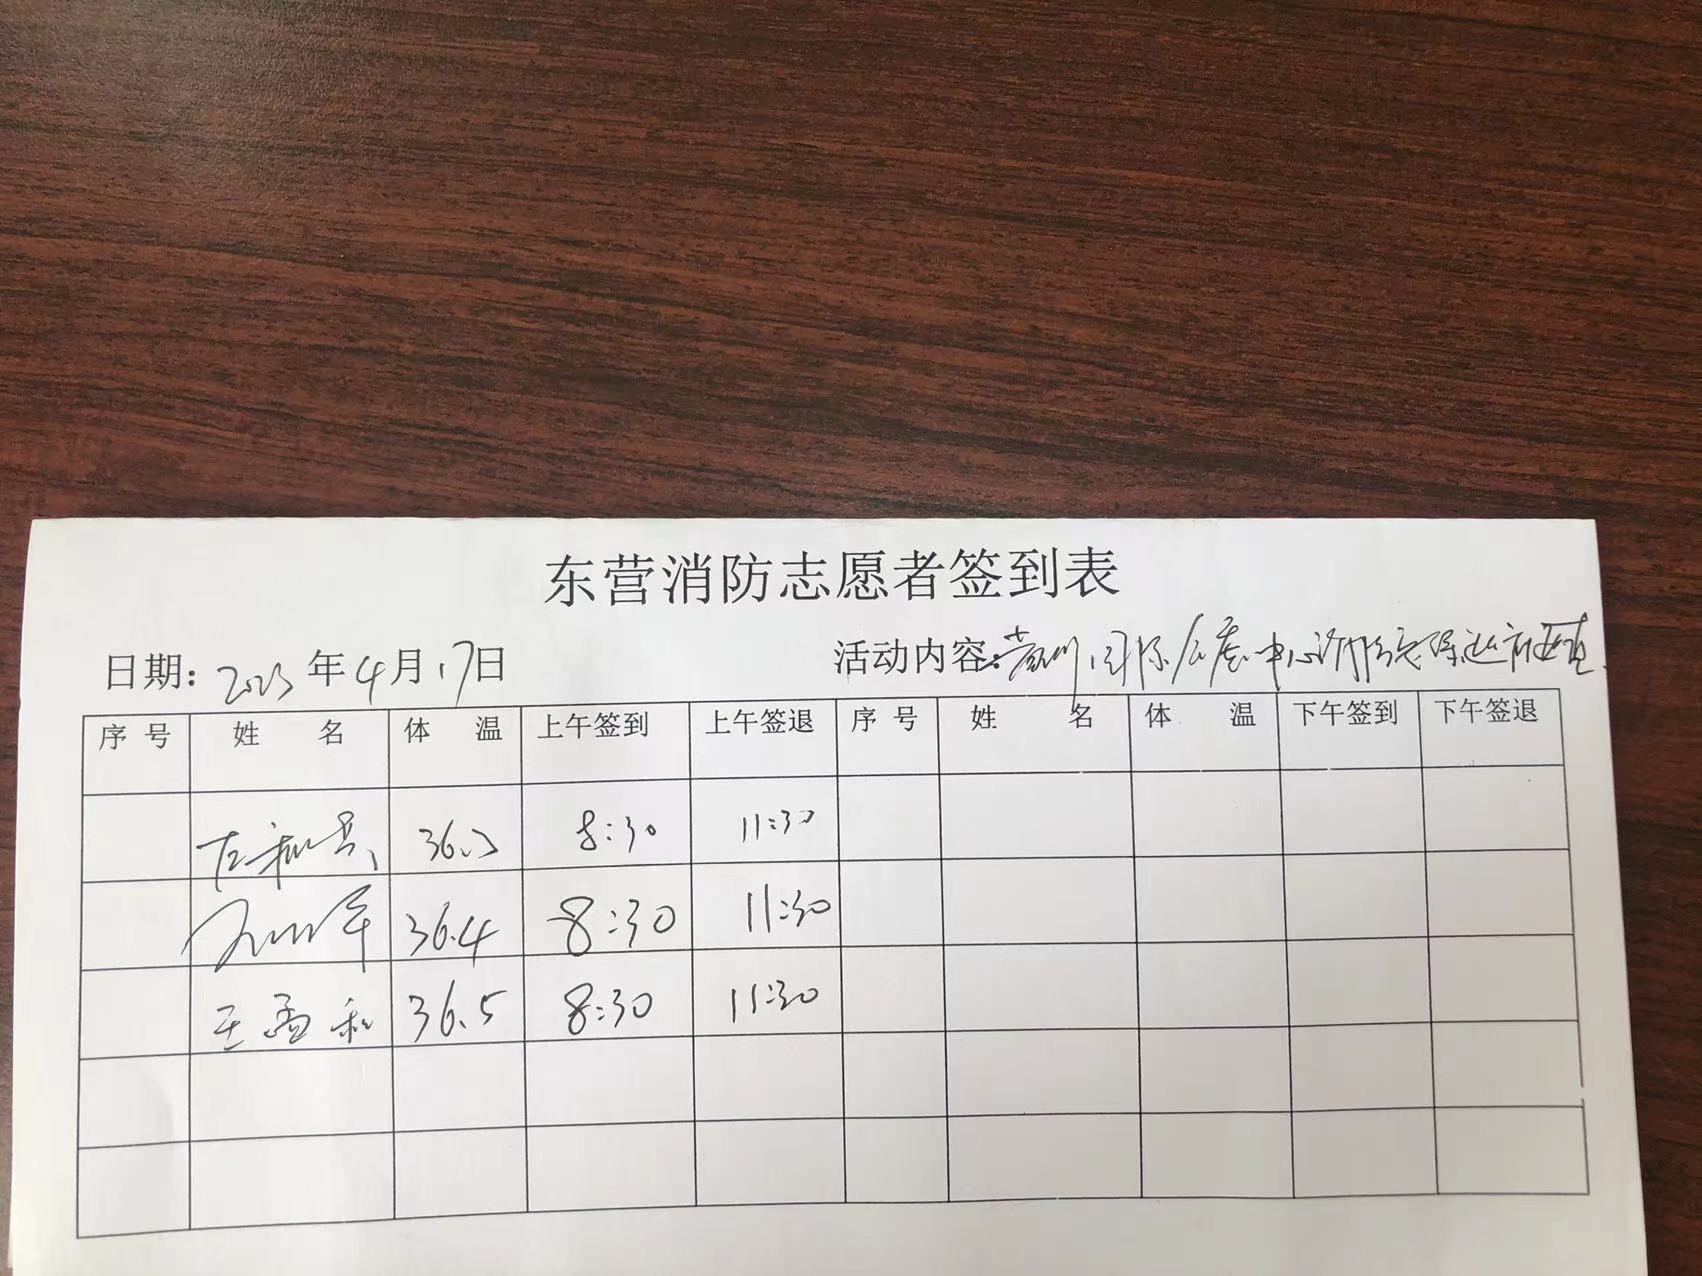 东营消防志愿者签到表
日期: 2023年4月17日 活动内容: 黄河国际会展中心消防安保巡逻执勤
序号 姓名 体温 上午签到 上午签退 序号 姓名 体温 下午签到 下午签退
36.2 8:30 11:30
36.4 8:30 11:30
王孟和 36.5 8:30 11:30